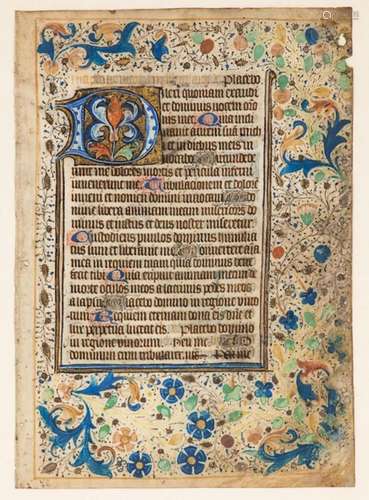 Placebo
Dilexi quoniam exaudi
et dominus vocem oro
nis mee Quia incli
navit aurem sua mich
et in diebus meis in
vocabo Circundede
runt me dolores mortis et pericula inferni
invenerunt me Tribulacionem et dolore
inveni et nomen domini invocavi
domine libera animam meam misericors do
minus et iustus et deus noster miseretur
Custodiens parvulos dominus humilia
tus sum et liberavit me Convertere ai
a in requiem tuam quia dominus bene
fecit tibi Quia eripuit animam meam de
morte oculos meos a lacrimis pedes meos
a lapsu Placebo domino in regione vivo
rum Requiem eternam dona eis dne et
lux perpetua luceat eis Placebo domino
in regione vivorum Heu me
dominum cum tribularer Heu me